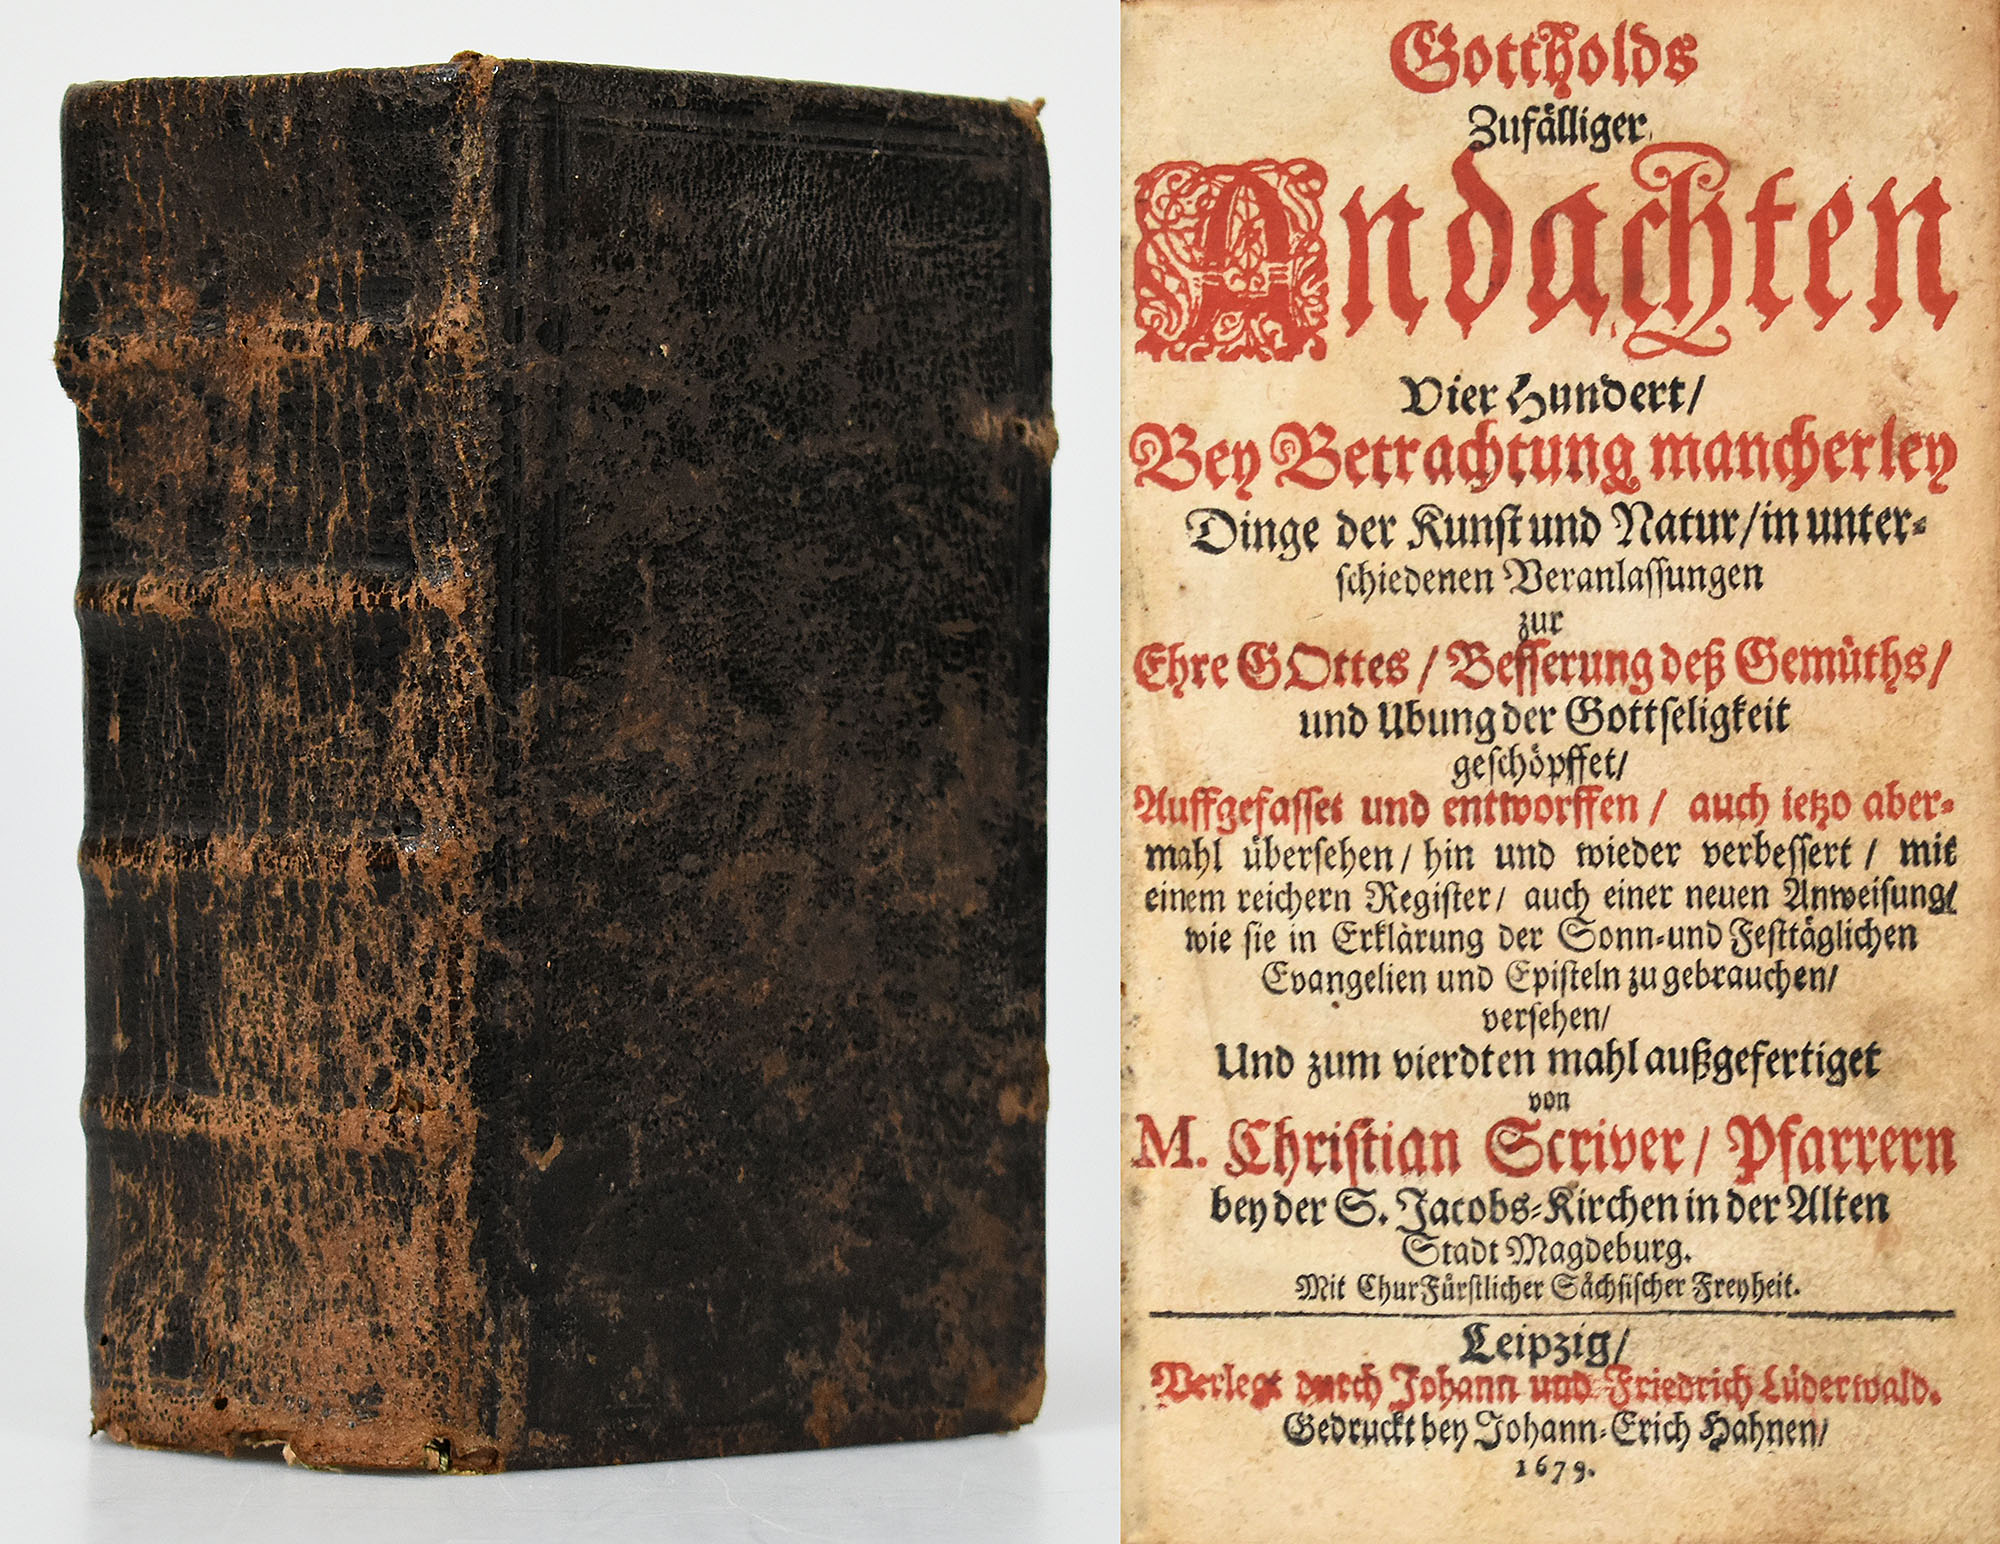 Gottholds
Zufälliger
Andachten
Vier Hundert/
Bey Betrachtung mancherley
Dinge der Kunst und Natur/ in unter-
schiedenen Veranlassungen
zur
Ehre GOttes / Besserung deß Gemüths/
und Ubung der Gottseligkeit
geschöpffet/
Auffgefasset und entworffen / auch ietzo aber-
mahl übersehen/ hin und wieder verbessert / mit
einem reichern Register/ auch einer neuen Anweisung/
wie sie in Erklärung der Sonn-und Festtäglichen
Evangelien und Episteln zu gebrauchen/
versehen/
Und zum vierdten mahl außgefertiget
von
M. Christian Scriver/ Pfarrern
bey der S. Jacobs-Kirchen in der Alten
Stadt Magdeburg.
Mit ChurFürstlicher Sächsischer Freyheit.
Leipzig/
Verlegt durch Johann und Friedrich Lüderwald.
Gedruckt bey Johann-Erich Hahnen/
1679.